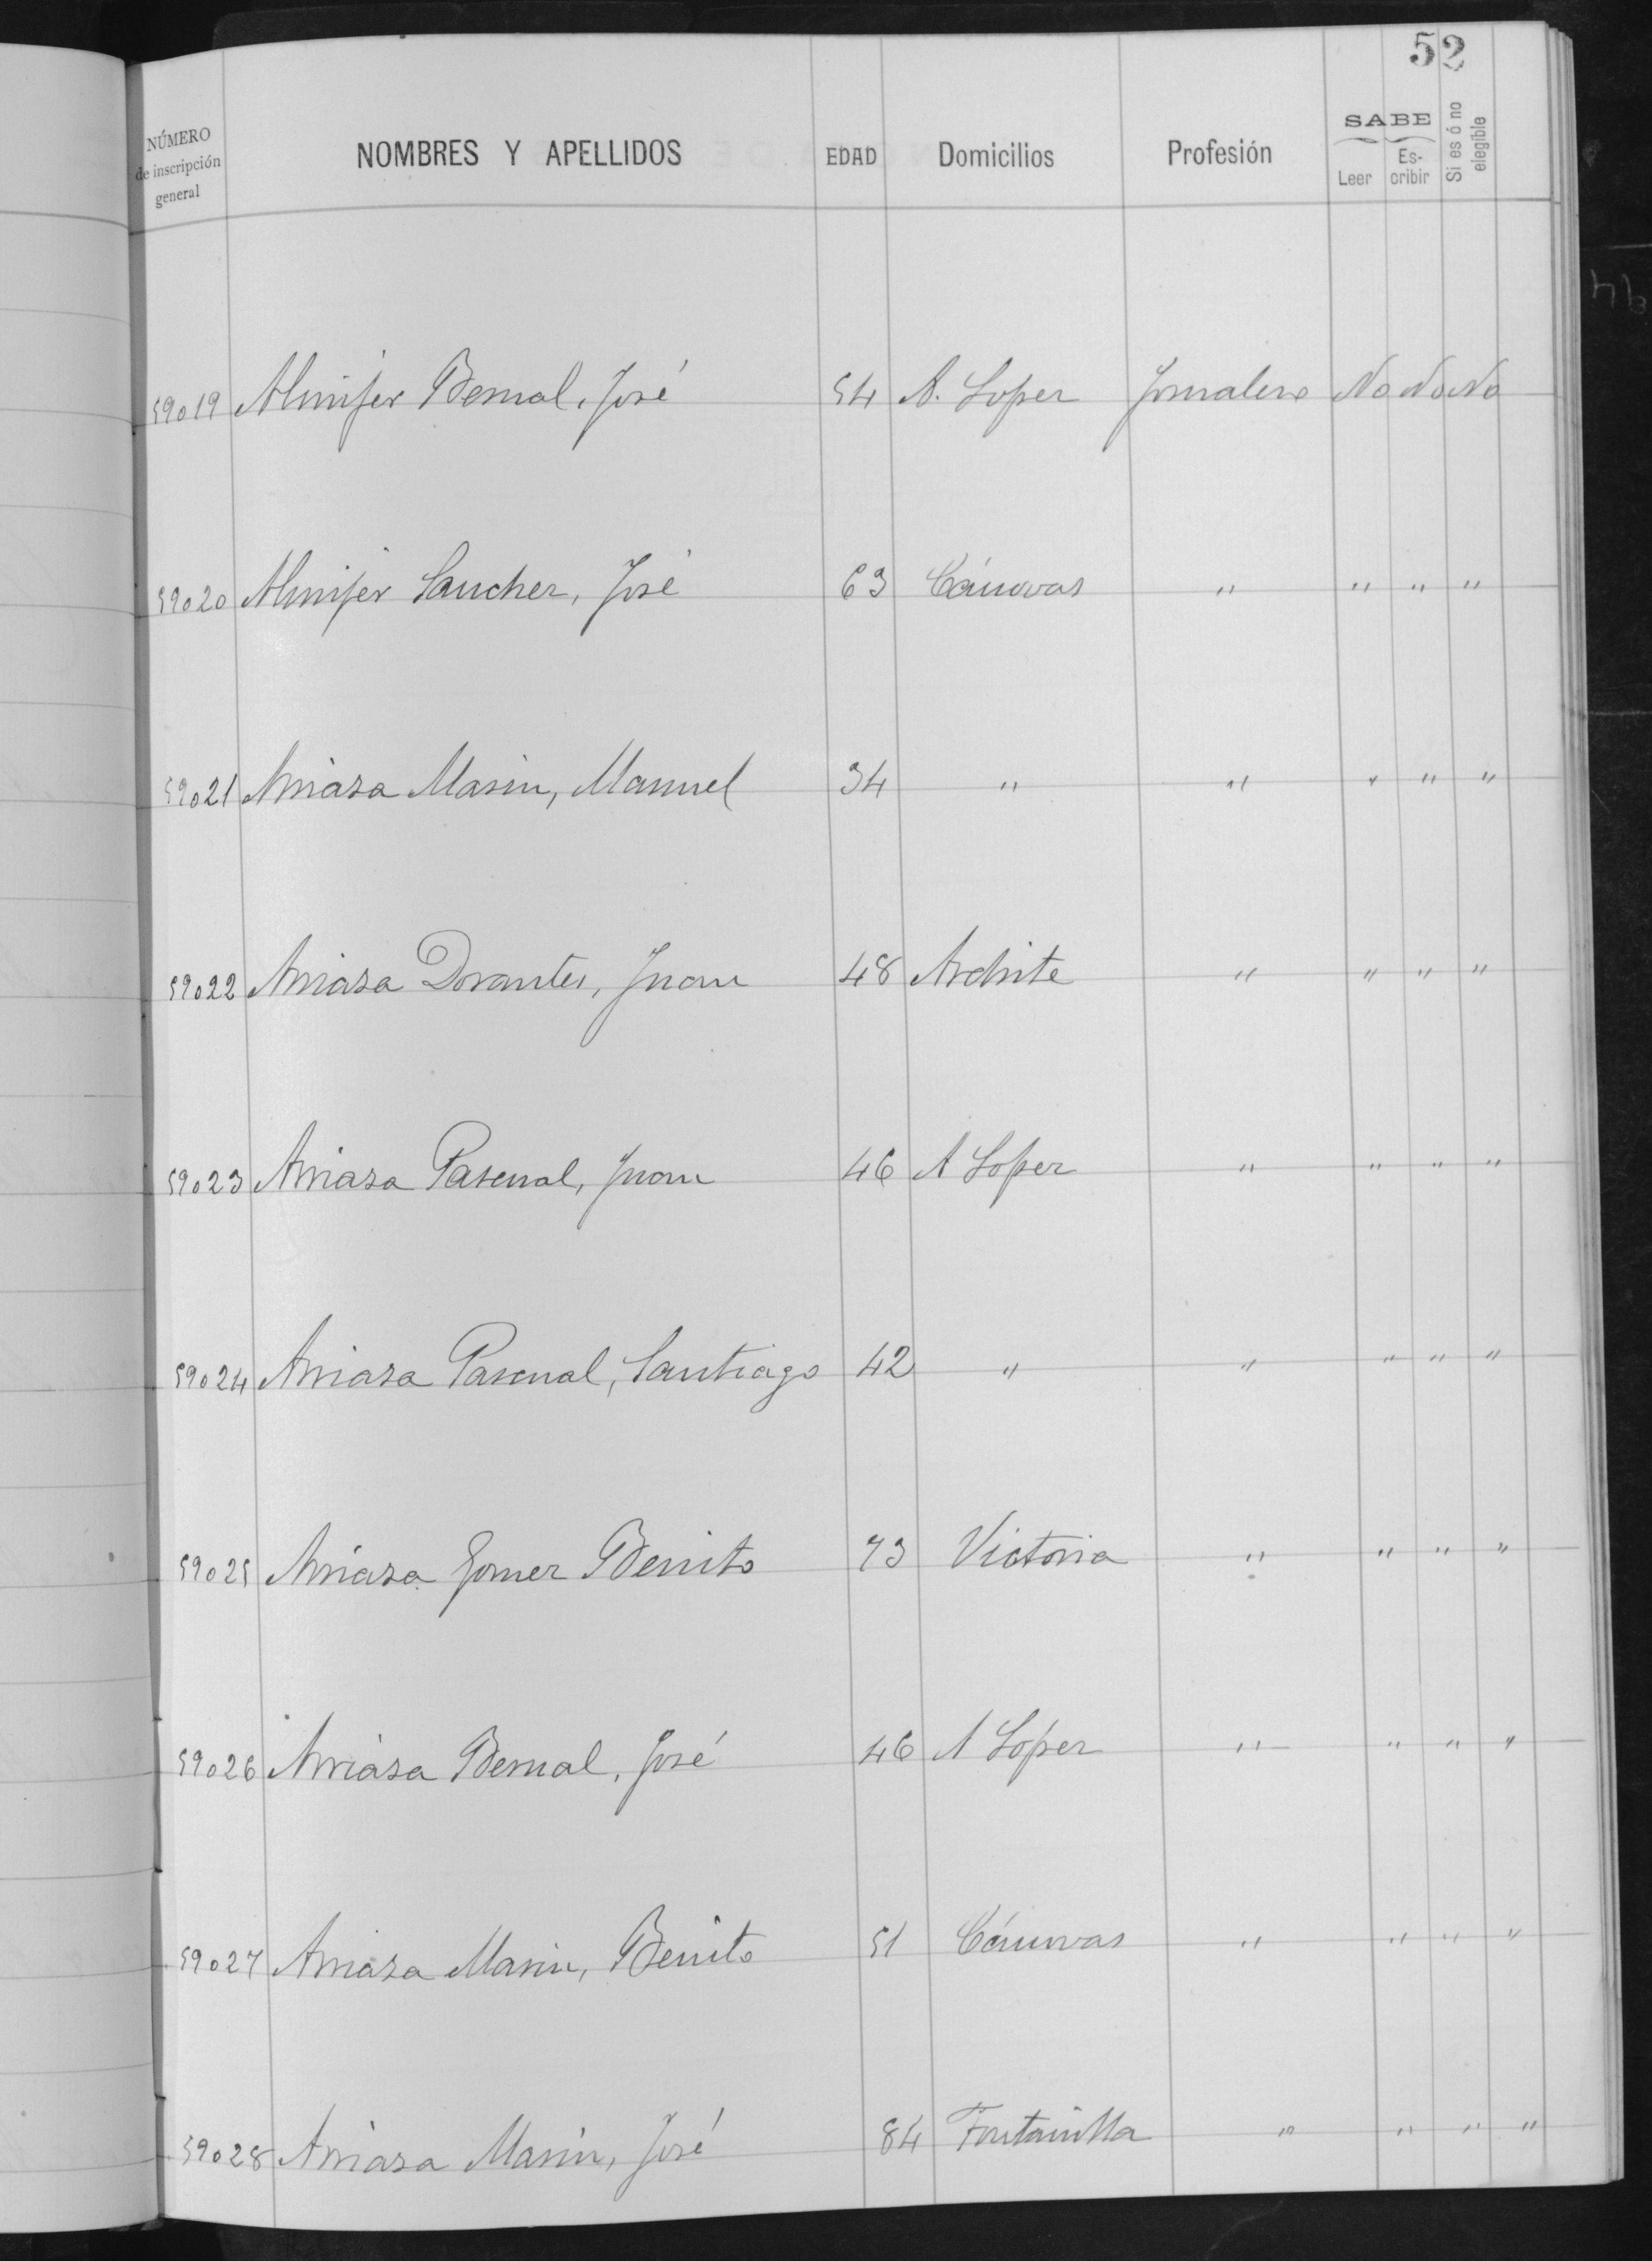 52
NÚMERO de inscripción general NOMBRES Y APELLIDOS EDAD Domicilios Profesión SABE Leer Es-cribir Si es ó no elegible
59019 Almijer Bernal, José 54 A. Loper Jornalero No No No
59020 Almijer Sancher, José 63 Cánovas " " " "
59021 Arriaza Marin, Manuel 34 " " " " "
59022 Arriaza Dorantes, Juan 48 Ardrite " " " "
59023 Arriaza Pascual, Juan 46 A Loper " " " "
59024 Arriaza Pascual, Santiago 42 " " " " "
59025 Arriaza Gomer Benito 73 Victoria " " " "
59026 Arriaza Bernal, José 46 A Lóper " " " "
59027 Arriaza Marin, Benito 51 Cánovas " " " "
59028 Arriaza Marin, José 84 Fontanilla " " " "